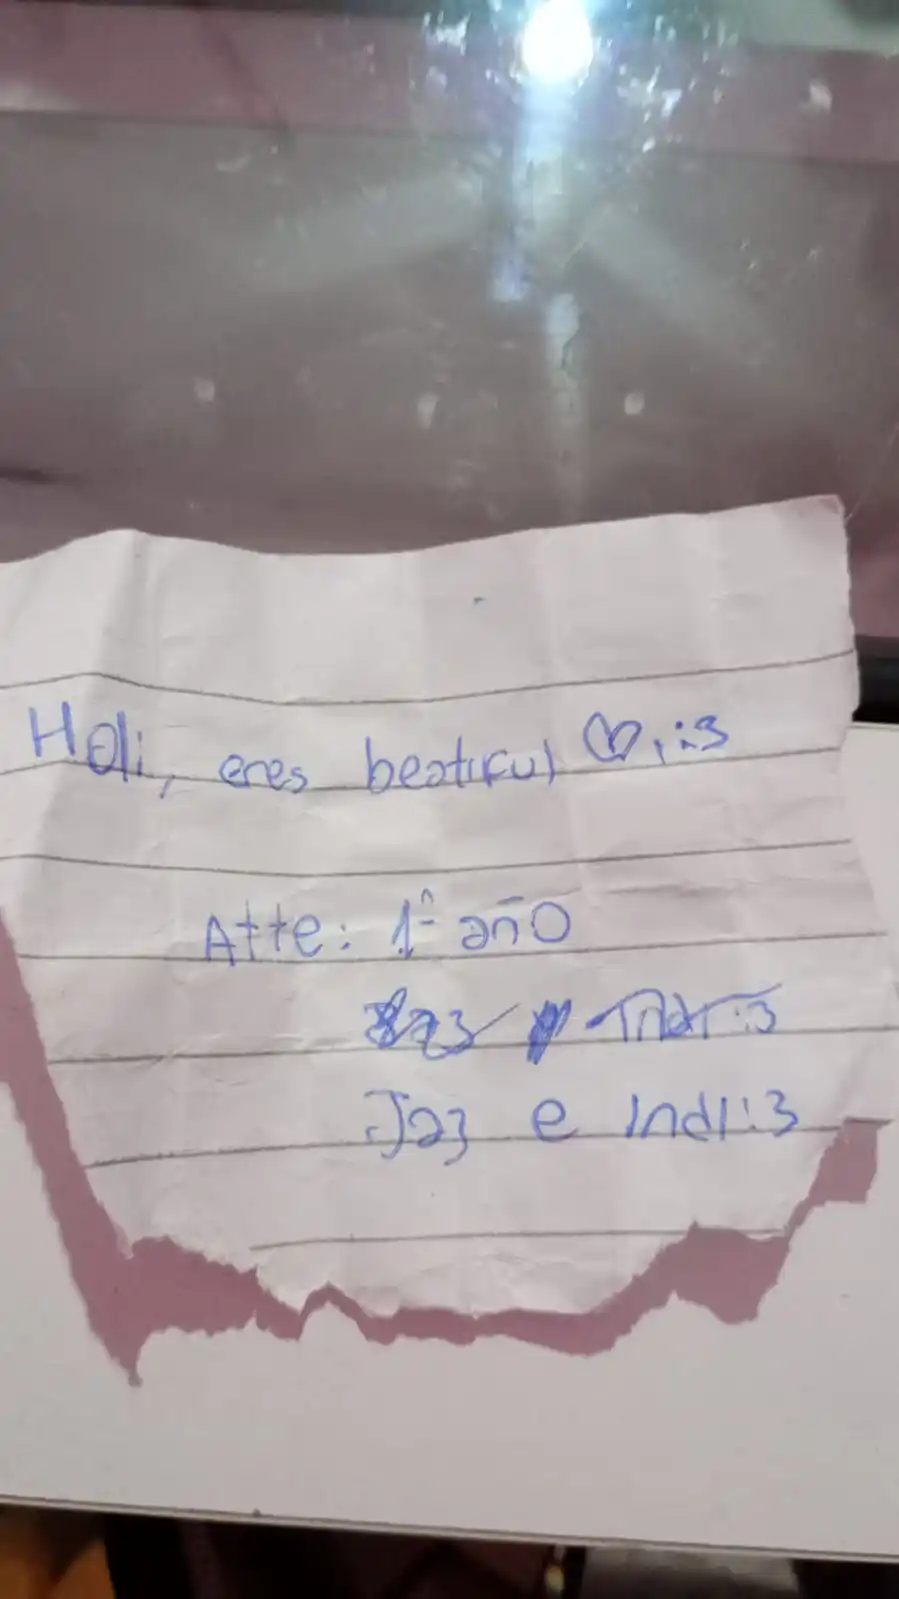 Holi, eres beatiful ♡, :3
Atte: 1º año
Jaz e Indi :3